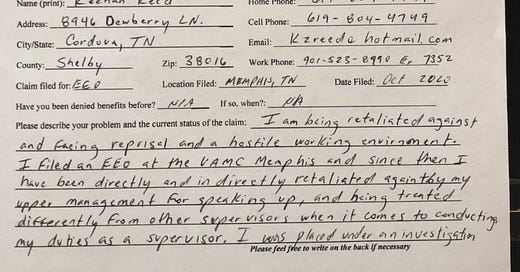 Name (print): Reed Home Phone:
Address: 8996 Dewberry LN. Cell Phone: 619-804-4749
City/State: Cordova, TN Email: Kzreede hotmail.com
County: Shelby Zip: 38016 Work Phone: 901-523-8990 Ex 7352
Claim filed for: EEO Location Filed: MEMPHIS, TN Date Filed: Oct 2020
Have you been denied benefits before? N/A If so, when?: NA
Please describe your problem and the current status of the claim: I am being retaliated against
and facing reprisal and a hostile working envirnment.
I filed an EEO at the VAMC Memphis and since then I
have been directly and indirectly retaliated again by my
upper management for speaking up, and being treated
differently from other supervisors when it comes to conducting
my duties as a supervisor. I was placed under an investigation
Please feel free to write on the back if necessary